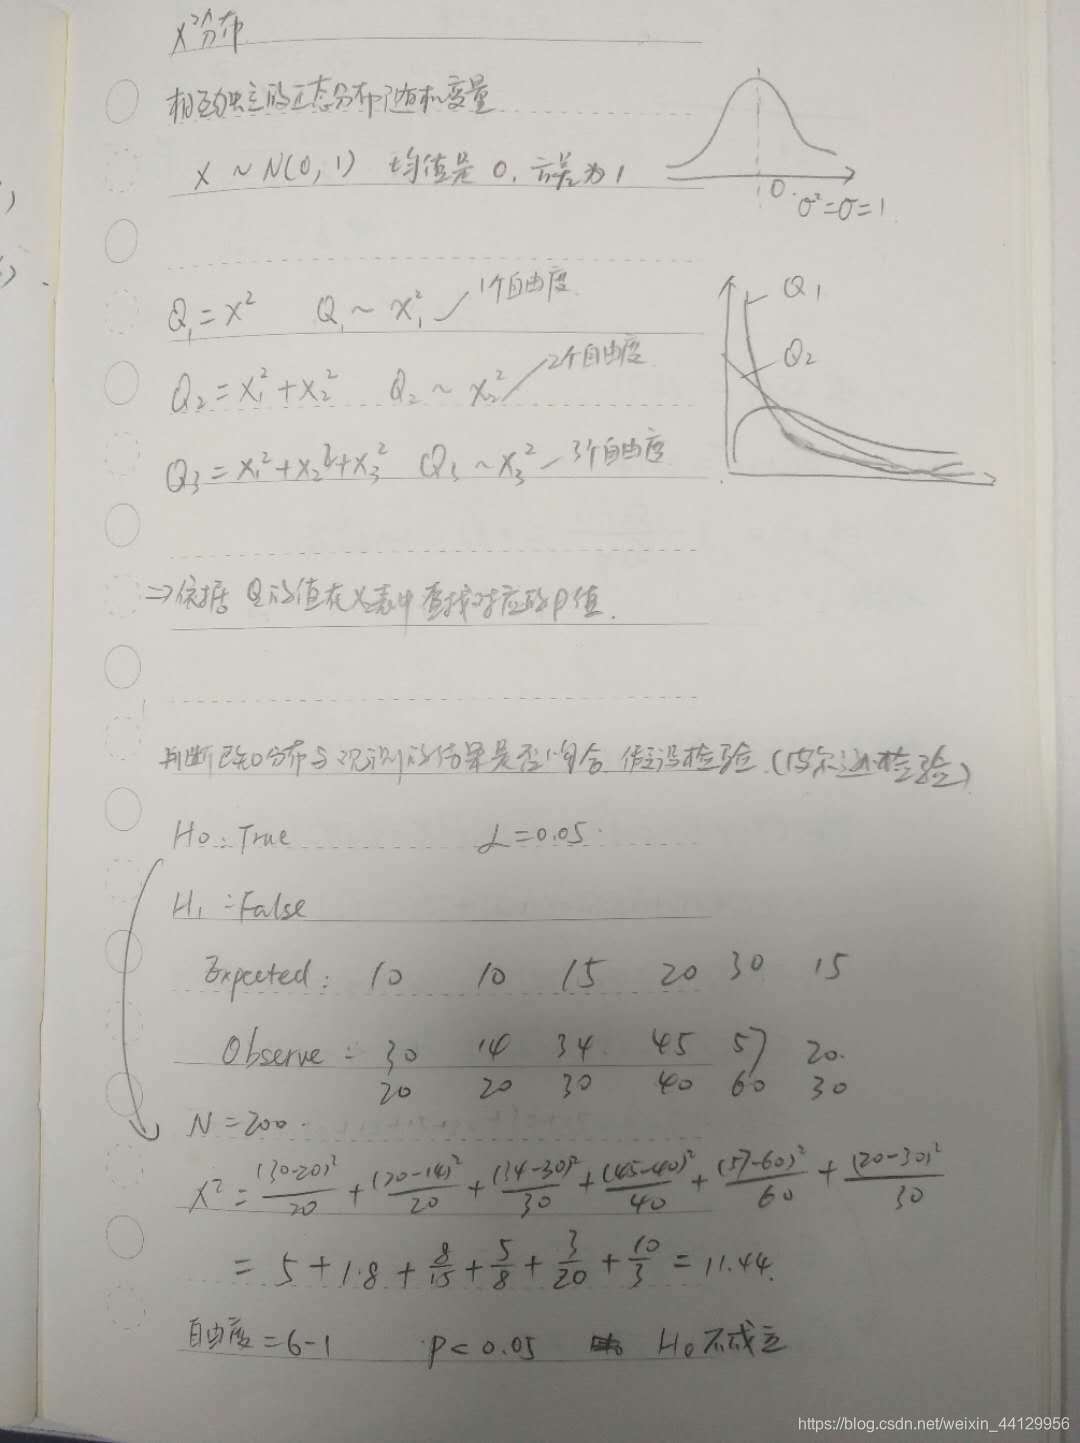 X²分布
相互独立的正态分布随机变量
X ~ N(0, 1) 均值是 0, 方差为 1
0
σ²=σ=1
Q₁ = X² Q₁ ~ X₁² 1个自由度
Q₂ = X₁² + X₂² Q₂ ~ X₂² 2个自由度
Q₃ = X₁² + X₂² + X₃² Q₃ ~ X₃² 3个自由度
Q₁
Q₂
⇒依据 Q的值在X²表中查找对应的P值.
判断已知分布与观测的结果是否吻合 假设检验 (皮尔逊检验)
H₀: True α=0.05
H₁: False
Expected: 10 10 15 20 30 15
Observe: 30 14 34 45 57 20
20 20 30 40 60 30
N = 200
X² = (30-20)²/20 + (20-14)²/20 + (34-30)²/30 + (45-40)²/40 + (57-60)²/60 + (20-30)²/30
= 5 + 1.8 + 8/15 + 5/8 + 3/20 + 10/3 = 11.44
自由度 = 6-1 P < 0.05 H₀ 不成立
https://blog.csdn.net/weixin_44129956